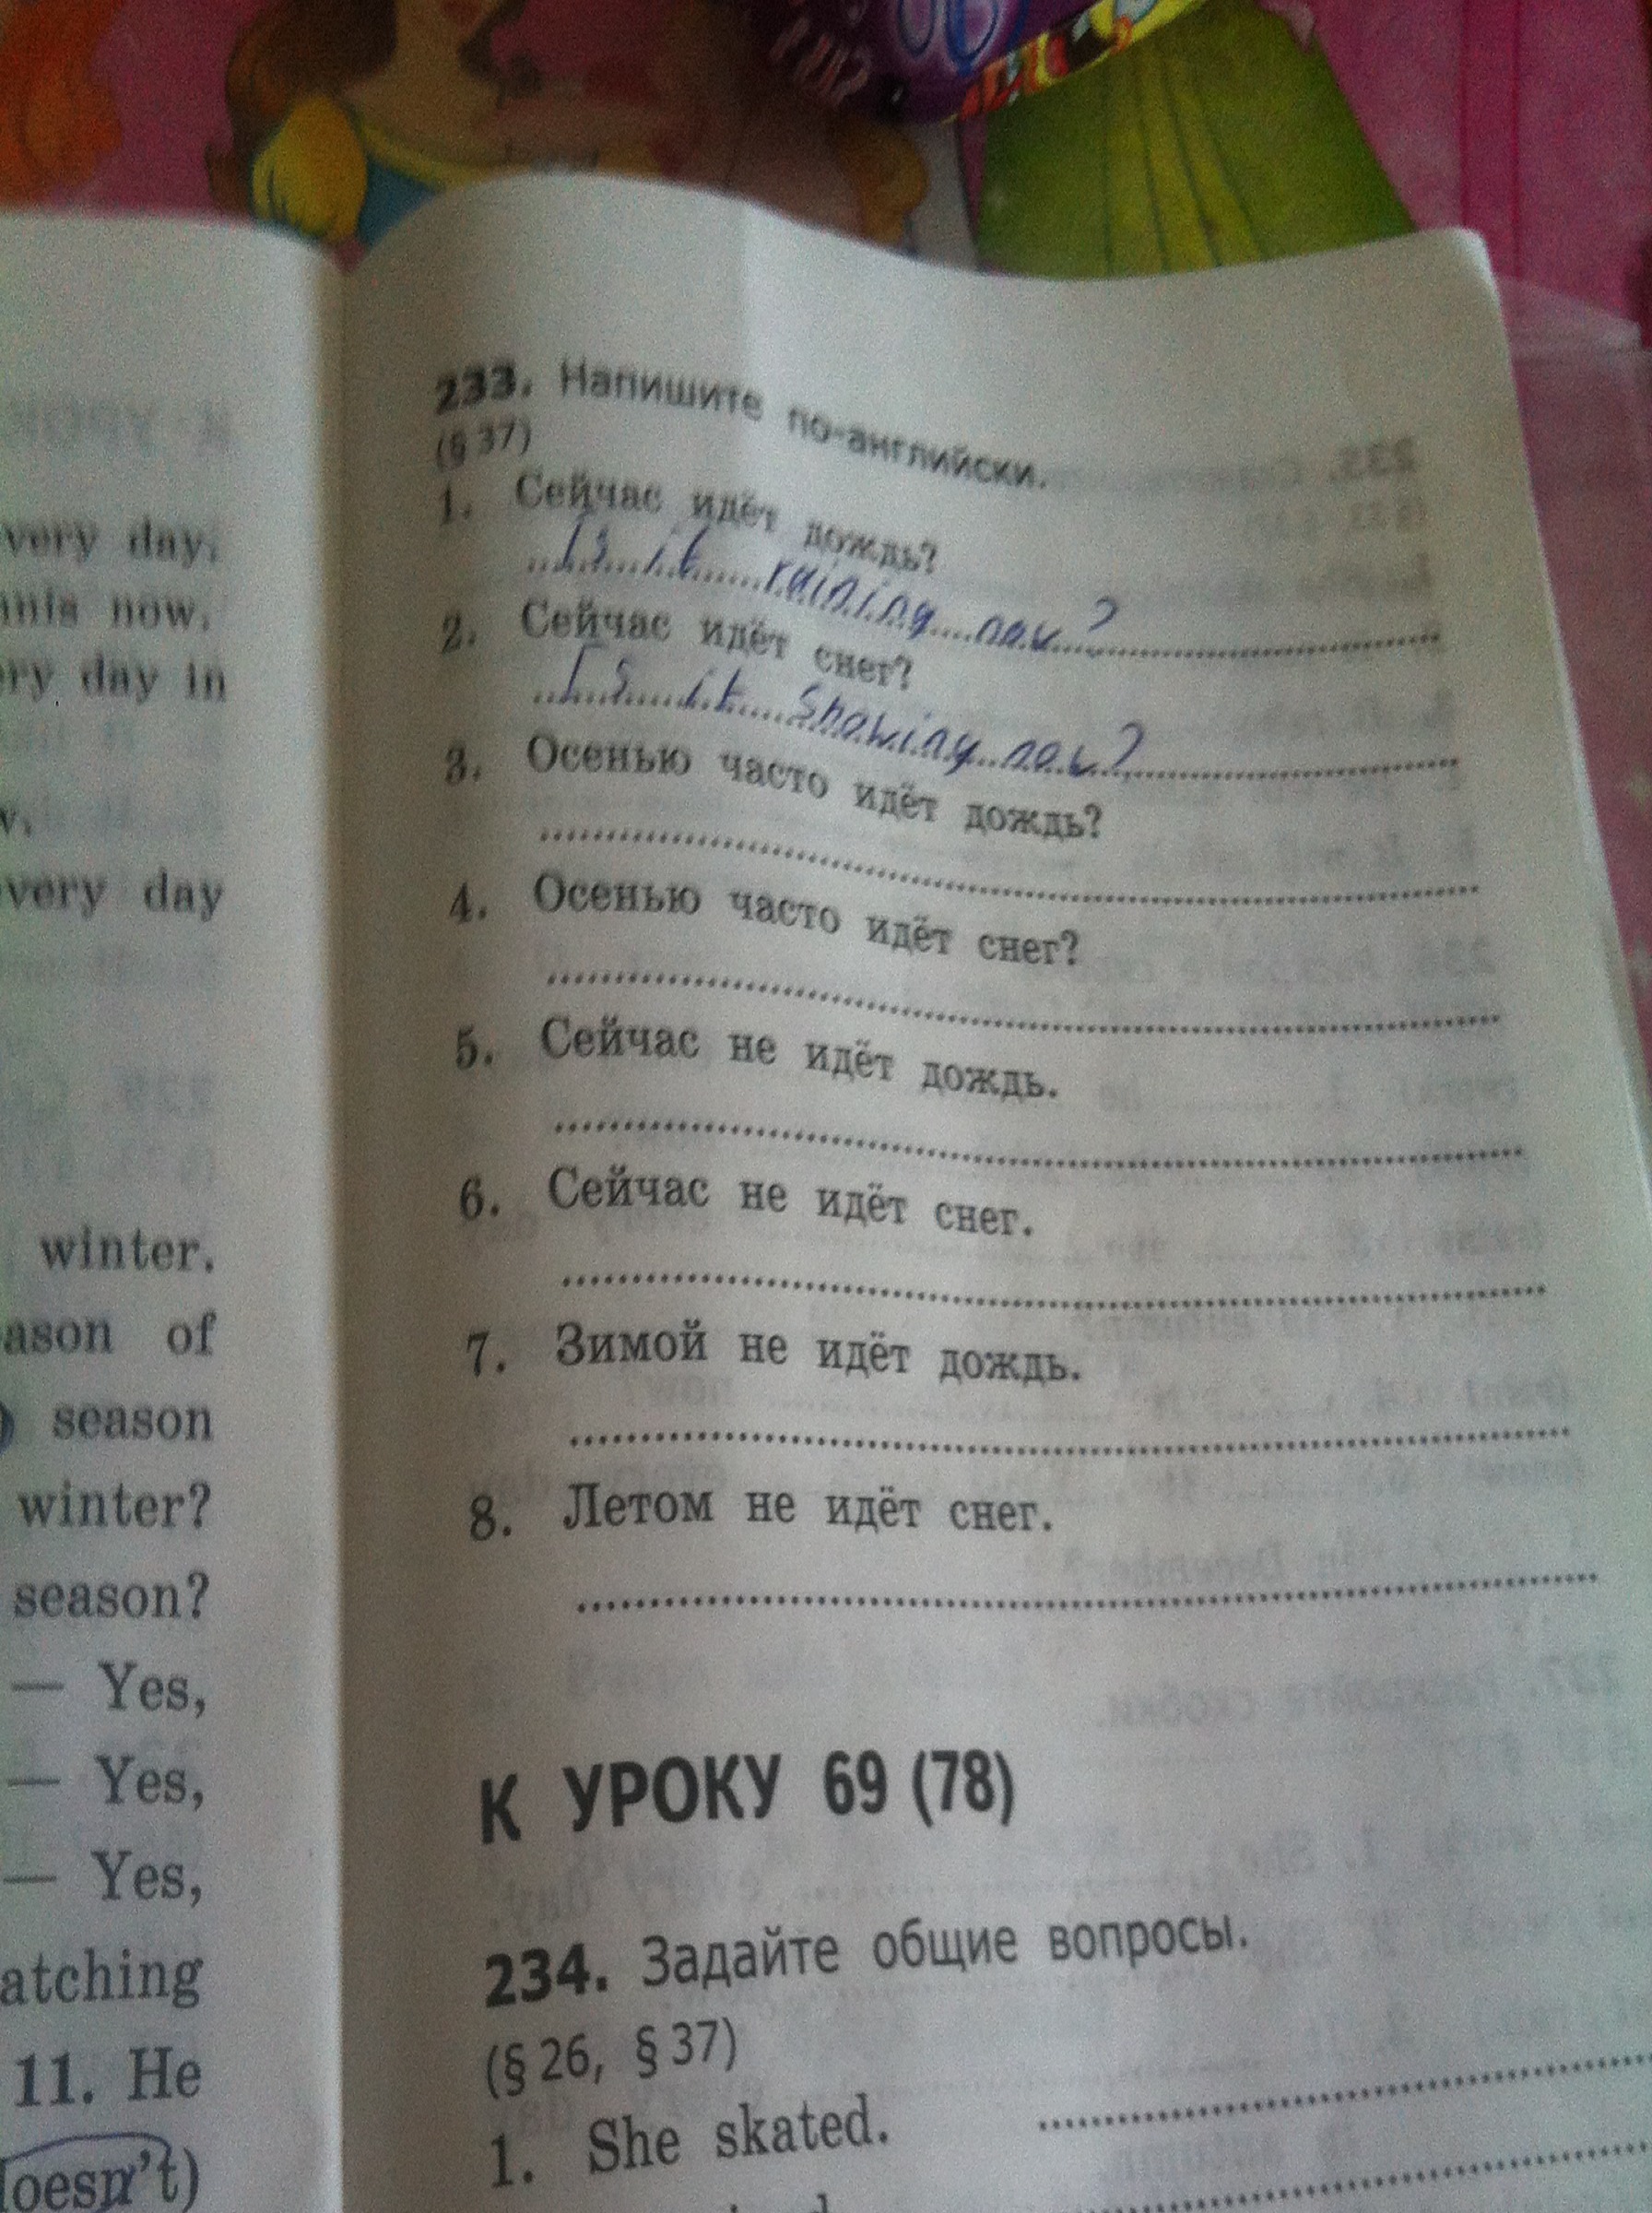 very day.
nnis now.
ry day in
w.
very day
winter.
ason of
) season
winter?
season?
— Yes,
— Yes,
— Yes,
atching
11. He
oesn't)
233. Напишите по-английски.
(§ 37)
1. Сейчас идёт дождь?
Is it raining now?
2. Сейчас идёт снег?
Is it snowing now?
3. Осенью часто идёт дождь?
4. Осенью часто идёт снег?
5. Сейчас не идёт дождь.
6. Сейчас не идёт снег.
7. Зимой не идёт дождь.
8. Летом не идёт снег.
К УРОКУ 69 (78)
234. Задайте общие вопросы.
(§ 26, § 37)
1. She skated.